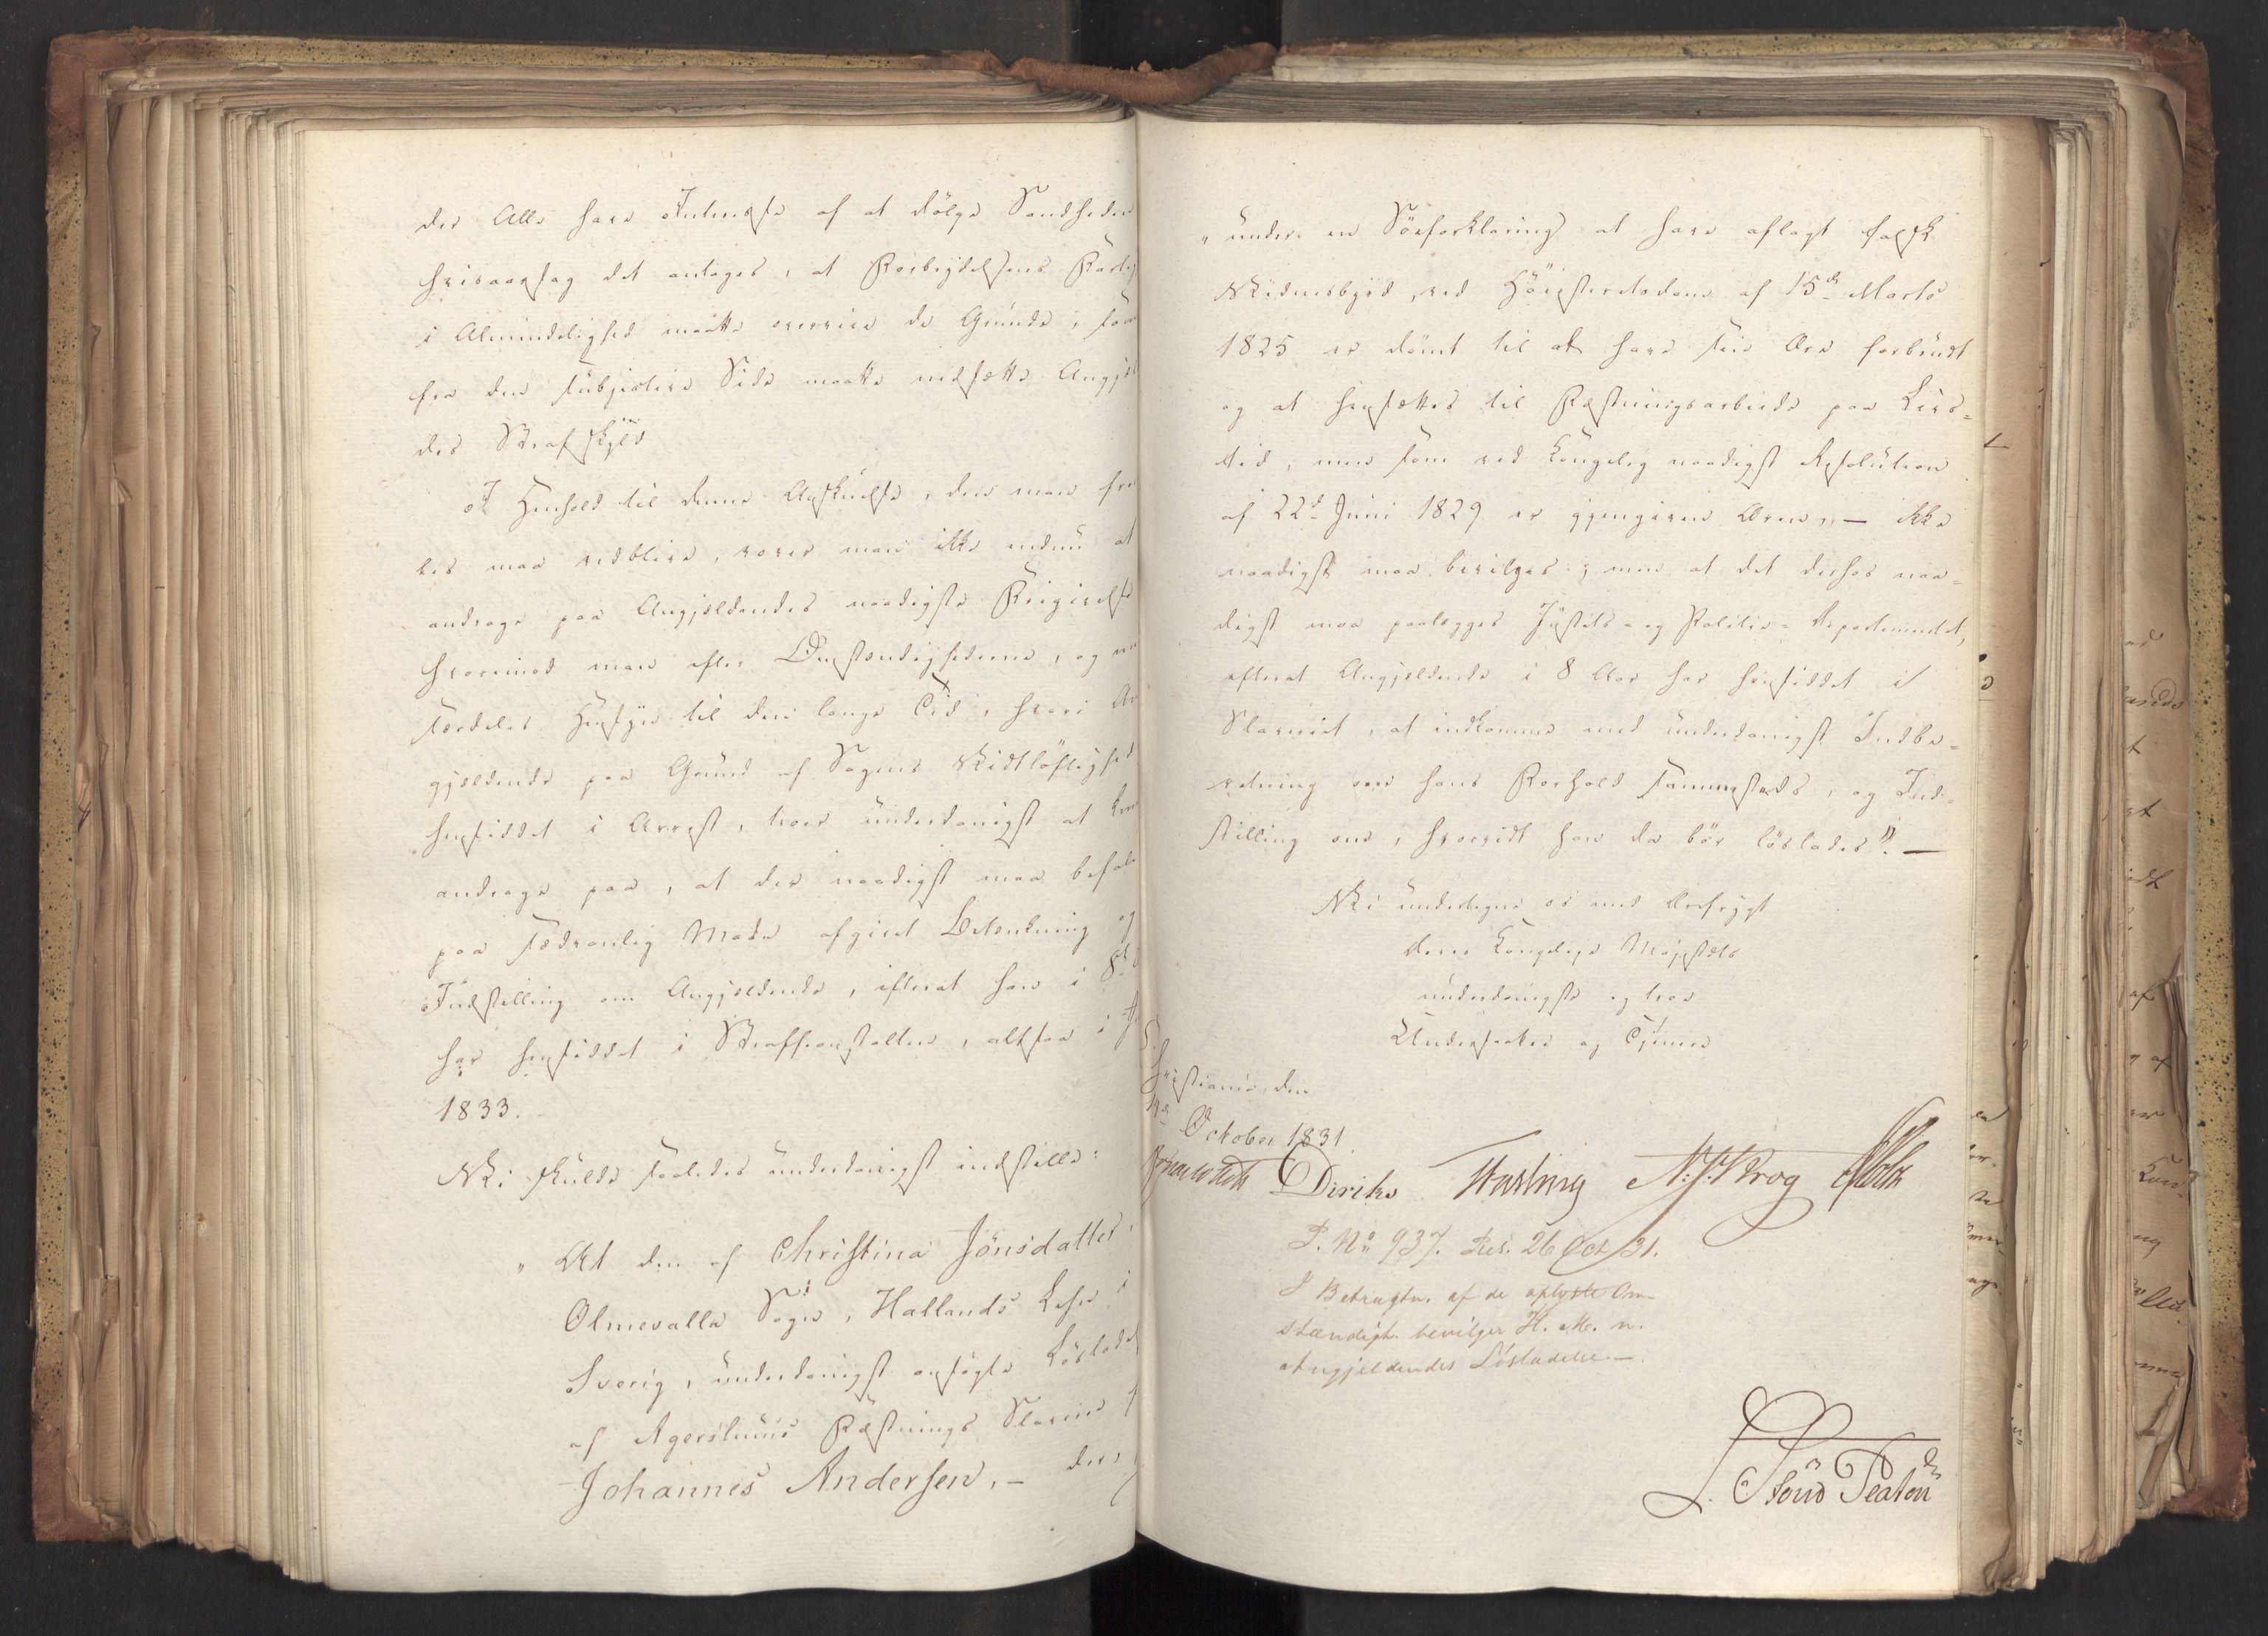 der Alle have Interesse af at dölge Sandheden
hvisaarsag det antages, at Forbrydelsens
i Almindelighed maatte opveie de Grunde, som
fra den subjective Side maatte nedsætte Angjæl
des Strafskyld
I Henhold til denne Anskuelse, der man
les maa vedblive, vover man ikke endnu at
andrage paa Angjældendes naadigste Frigivelse
hvorimod man efter Omstændighederne, og
særdeles Hensyn til den lange Tid, hvori An
gjældende paa Grund af Sagens Vidtløftighed
hensiddet i Arrest, troer underdanigst at
andrage paa, at der naadigst maa befales
paa sædvanlig Maade afgivet Betænkning og
Indstilling om Angjældende, efterat han i 8te
har hensiddet i Straffeanstalten, altsaa i
1833.
Vi skulde saaledes underdanigst indstille:
„At den af Christina Jönsdatter,
Olmevalla Sogn, Hallands Lehn i
Sverig, underdanigst ansögte Löslad
af Agershuus Fæstnings Slaverie
Johannes Andersen, – der,
„under en Söeforklaring at have aflagt falsk
Vidnesbyrd, ved Höiesteretsdom af 15de Marts
1825 er dömt til at have sin Ære forbrudt
og at hensættes til Fæstningsarbeide paa Livs=
tid, men som ved Kongelig naadigst Resolution
af 22de Juni 1829 er gjengiven Æren, – ikke
naadigst maa bevilges; men at det derhos naa=
digst maa paalægges Justits- og Politie-Departementet,
efterat Angjældende i 8 Aar har hensiddet i
Slaveriet, at indkomme med underdanigst Indbe=
retning om hans Forhold sammesteds, og Ind=
stilling om, hvorvidt han da bör löslades". –
Vi undertegne os med Ærefrygt
Deres Kongelige Majestæts
underdanigste og troe
Undersaatter og Tjenere
Christiania, den
October 1831
Diriks N. J. Krog
P. No 937. Res. 26 Oct 31.
I Betragtn. af de oplyste Om-
stændigh. bevilger H. M. n.
Angjeldendes Lösladelse –.